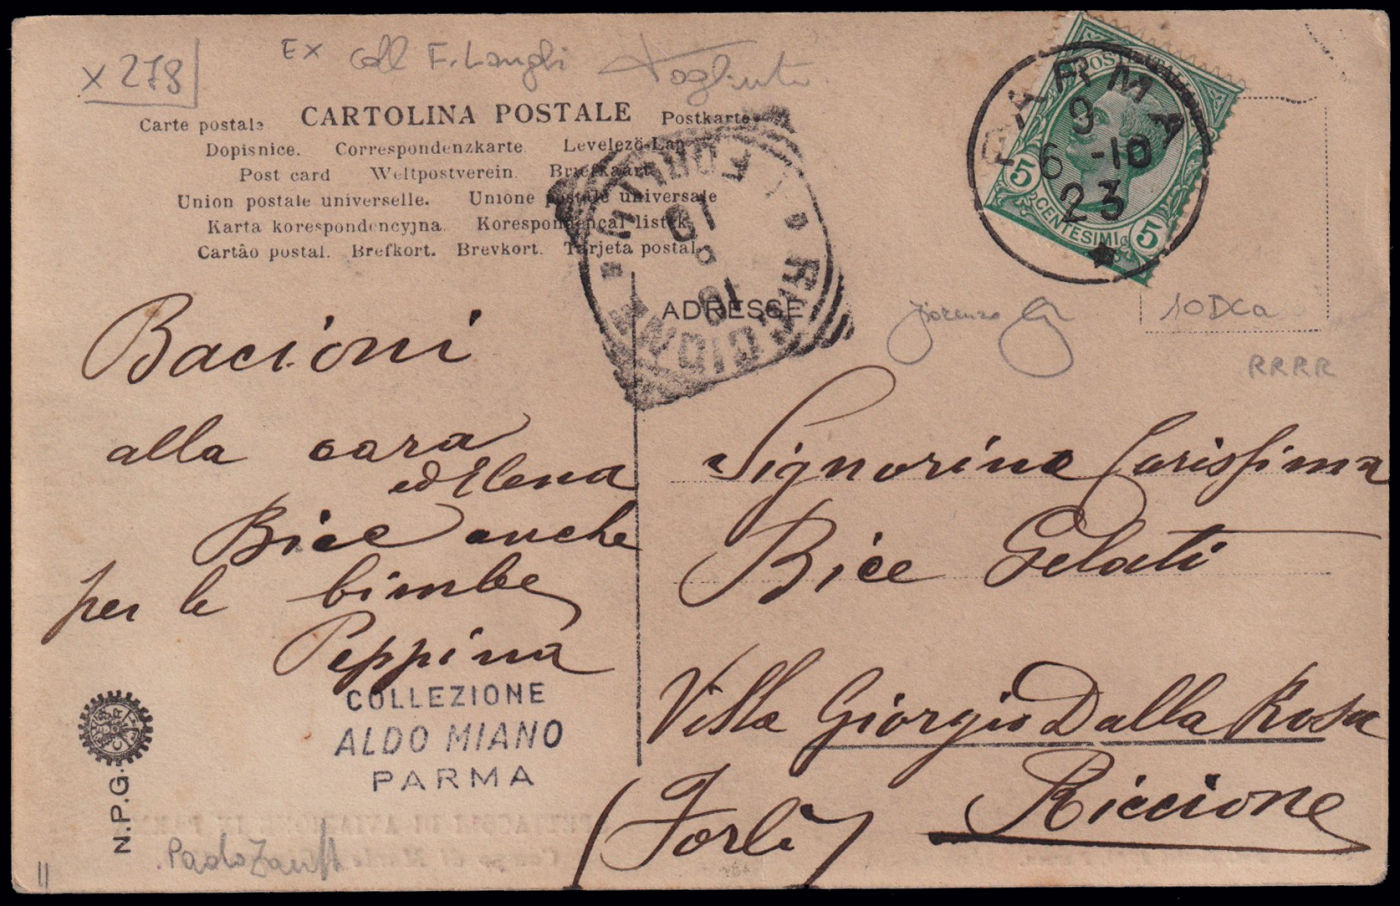 x 278
Ex coll F. Langli
CARTOLINA POSTALE
Carte postale
Postkarte
Dopisnice. Correspondenzkarte Levelező-Lap
Post card Weltpostverein. Briefkaart
Union postale universelle. Unione postale universale
Karta korespondencyjna Korespondencal listek
Cartão postal. Brefkort. Brevkort. Tarjeta postal
POSTE ITALIANE
5 CENTESIMI 5
PARMA
9
6 -10
23
RICCIONE
FORLI
10
9
10
ADRESSE
10DCa
RRRR
Bacioni
alla cara
ed Elena
Bice anche
per le bimbe
Peppina
COLLEZIONE
ALDO MIANO
PARMA
N.P.G.
11
Signorina Carissima
Bice Gelati
Villa Giorgio Dalla Rosa
Riccione
(Forlì)